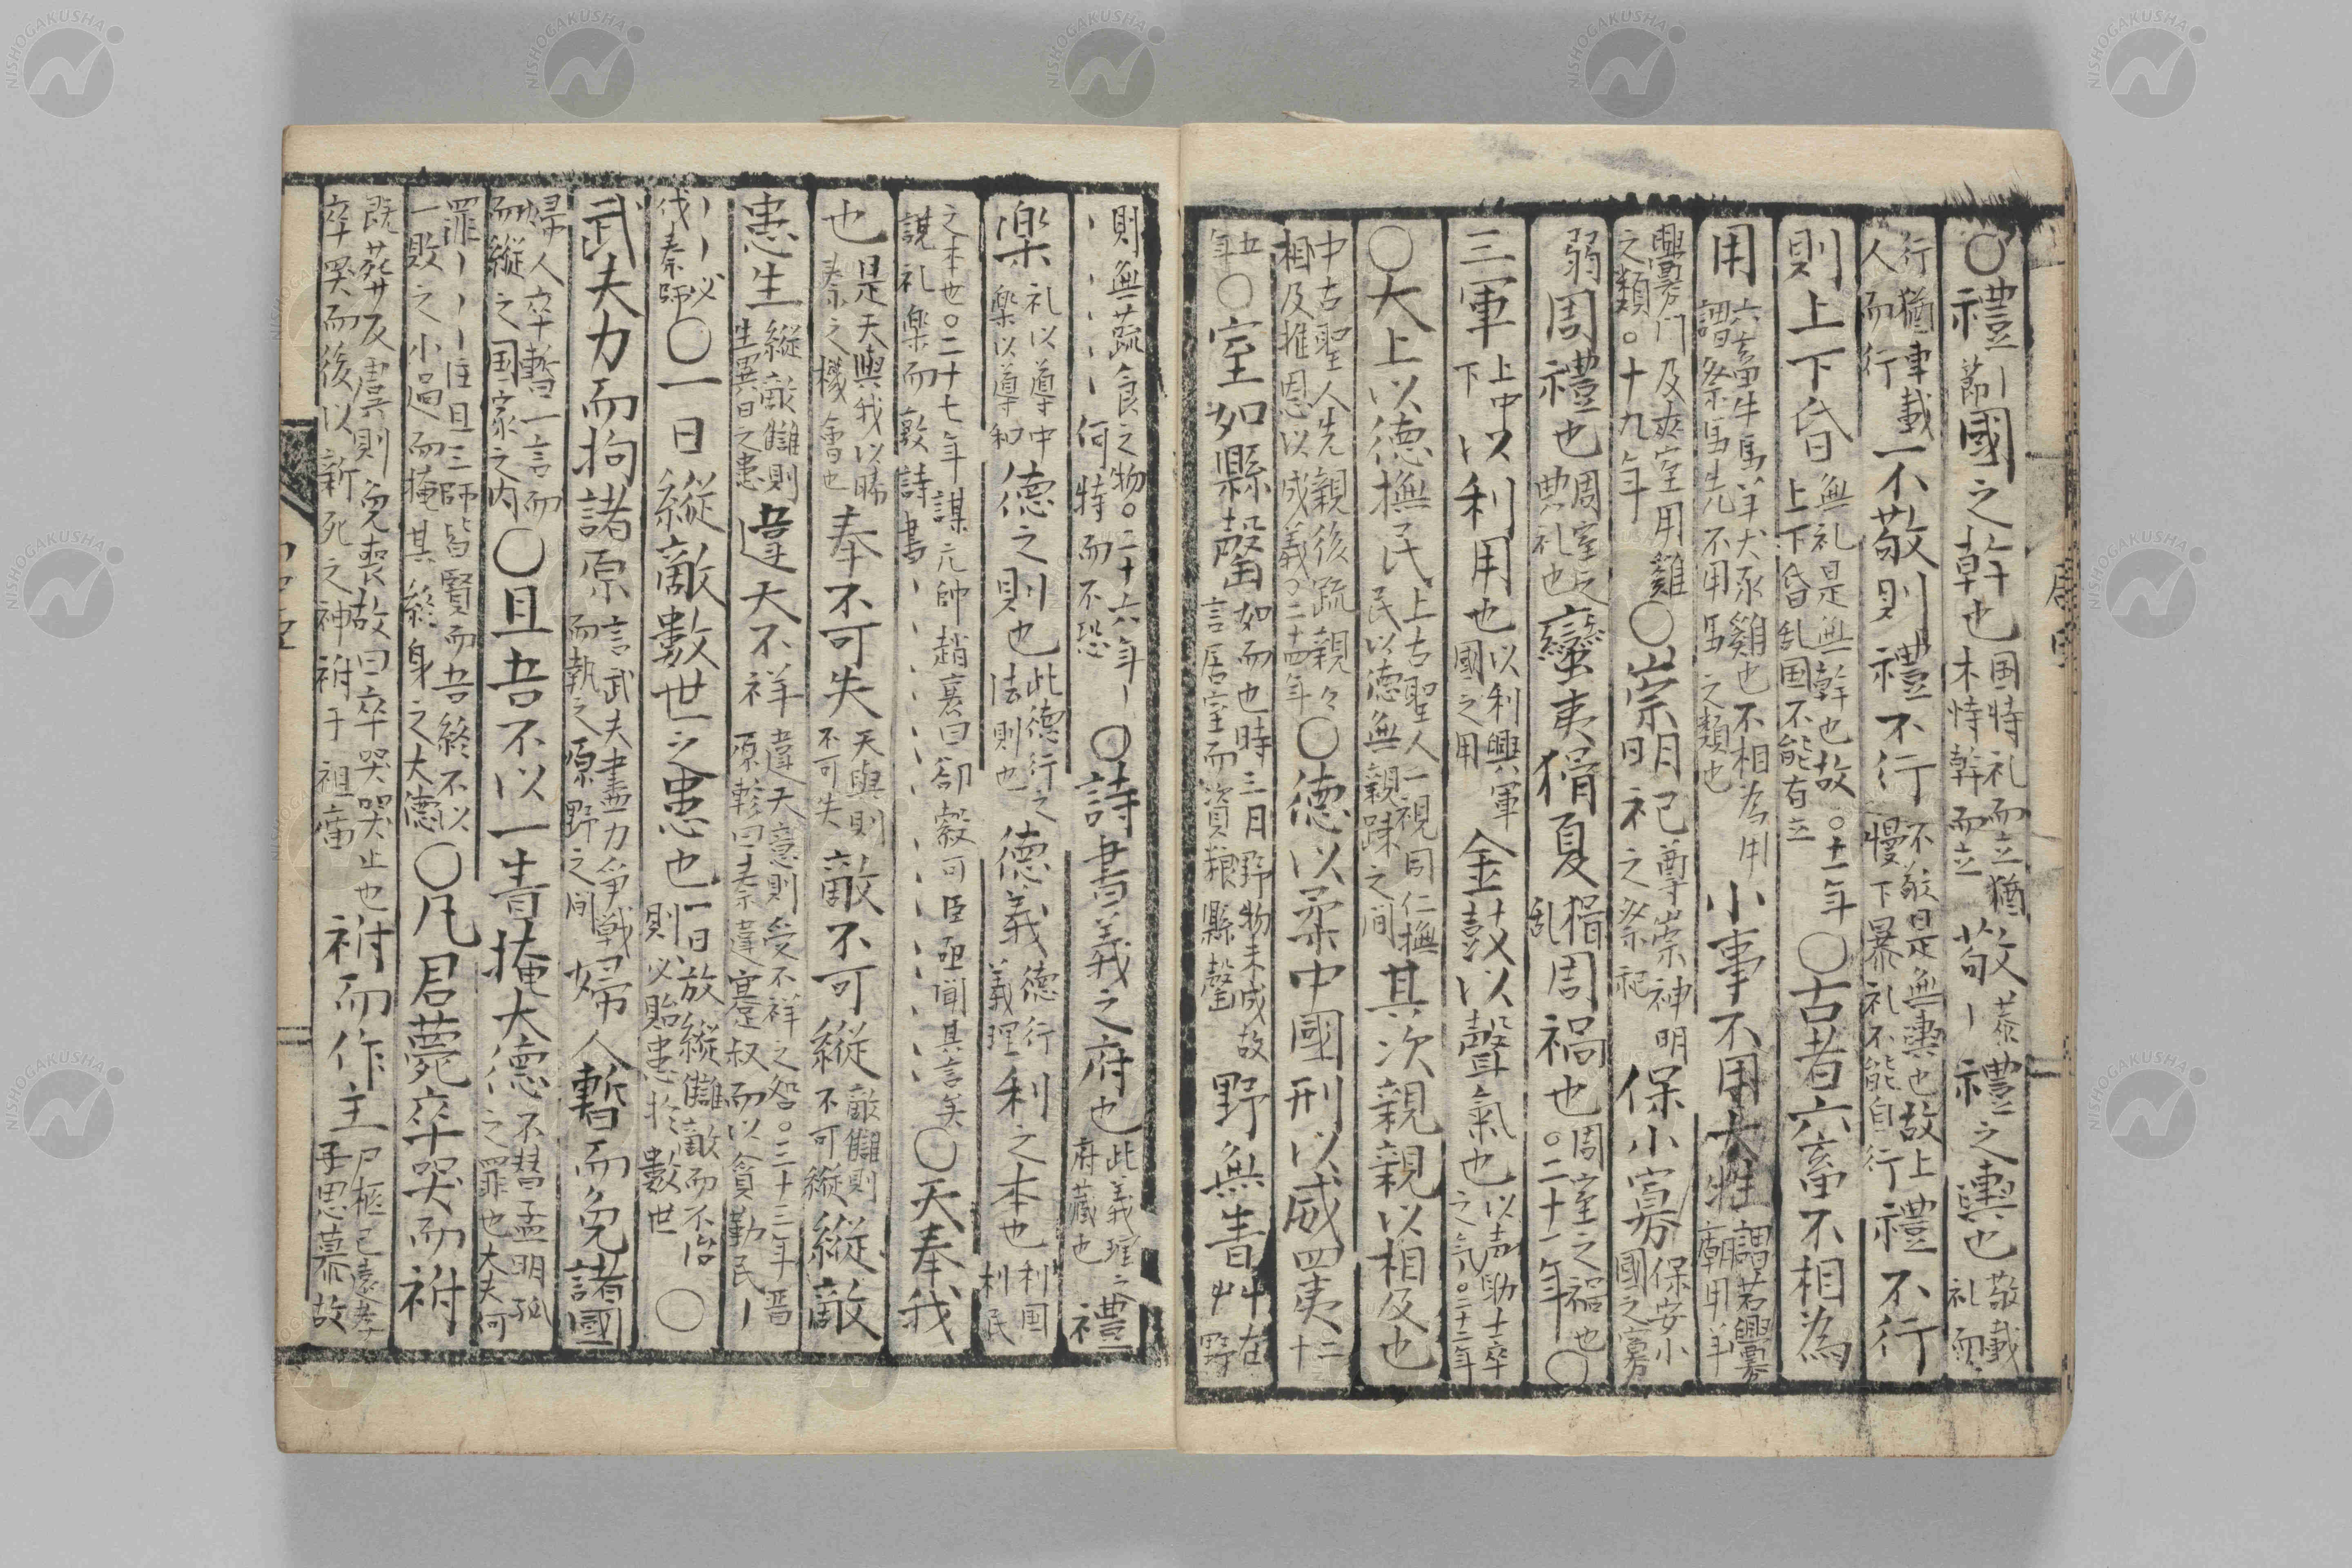 ○禮丨節國之幹也国恃礼而立猶木恃幹而立敬丨恭禮之輿也敬載礼而
行猶車載人而行一不敬則禮不行不敬是無輿也故上慢下暴礼不能自行禮不行
則上下昏無礼是無幹也故上下昏乱国不能有立○十一年○古者六畜不相為
用六畜牛馬羊犬豕雞也不相為用謂祭馬先不用馬之類也小事不用大牲謂若興釁廟用羊
興釁門及夾室用雞之類○十九年○崇明祀尊崇神明之祭祀保小寡保安小國之寡
弱周禮也周室之典礼也蠻夷猾夏猾乱周禍也周室之禍也○二十一年○
三軍上中下以利用也以利興軍國之用金鼓以聲氣也以声助士卒之气○二十二年
○大上以德撫民上古聖人一視同仁撫民以德無親踈之間其次親親以相及也
中古聖人先親後疏親々相及推恩以成義○二十四年○德以柔中國刑以威四夷二十
五年○室如縣罄如而也時三月野物未成故言居室而資粮縣罄野無青艸在野
則無蔬食之物○二十六年丨、、、、何恃而不恐○詩書義之府也此義理之府藏也禮
楽礼以導中楽以導和德之則也此德行之法則也德義德行義理利之本也利国利民
之本也○二十七年謀元帥趙衰曰郤縠可臣亟聞其言矣說礼楽而敦詩書、、、、、、、○天奉我
也是天與我以勝秦之機會也奉不可失天與則不可失敵不可縱敵讎則不可縱縱敵
患生縱敵讎則生異日之患違天不祥違天意則受不祥之咎○三十三年晋原軫曰秦違蹇叔而以貪勤民丨
丨丨必伐秦師○一日縱敵數世之患也一日放縱讎敵而不治則必貽患於數世○
武夫力而拘諸原言武夫盡力爭戦而執之原野之間婦人暫而免諸國
婦人卒暫一言而而縱之国家之内○且吾不以一眚掩大德丨之罪也大夫何不替孟明孤
罪丨丨丨注且三師皆賢而吾終不以一敗之小過而掩其終身之大德○凡君薨卒哭而祔
既葬反虞則免喪故曰卒哭哭止也卒哭而後以新死之神祔于祖廟祔而作主尸柩已遠孝子思慕故